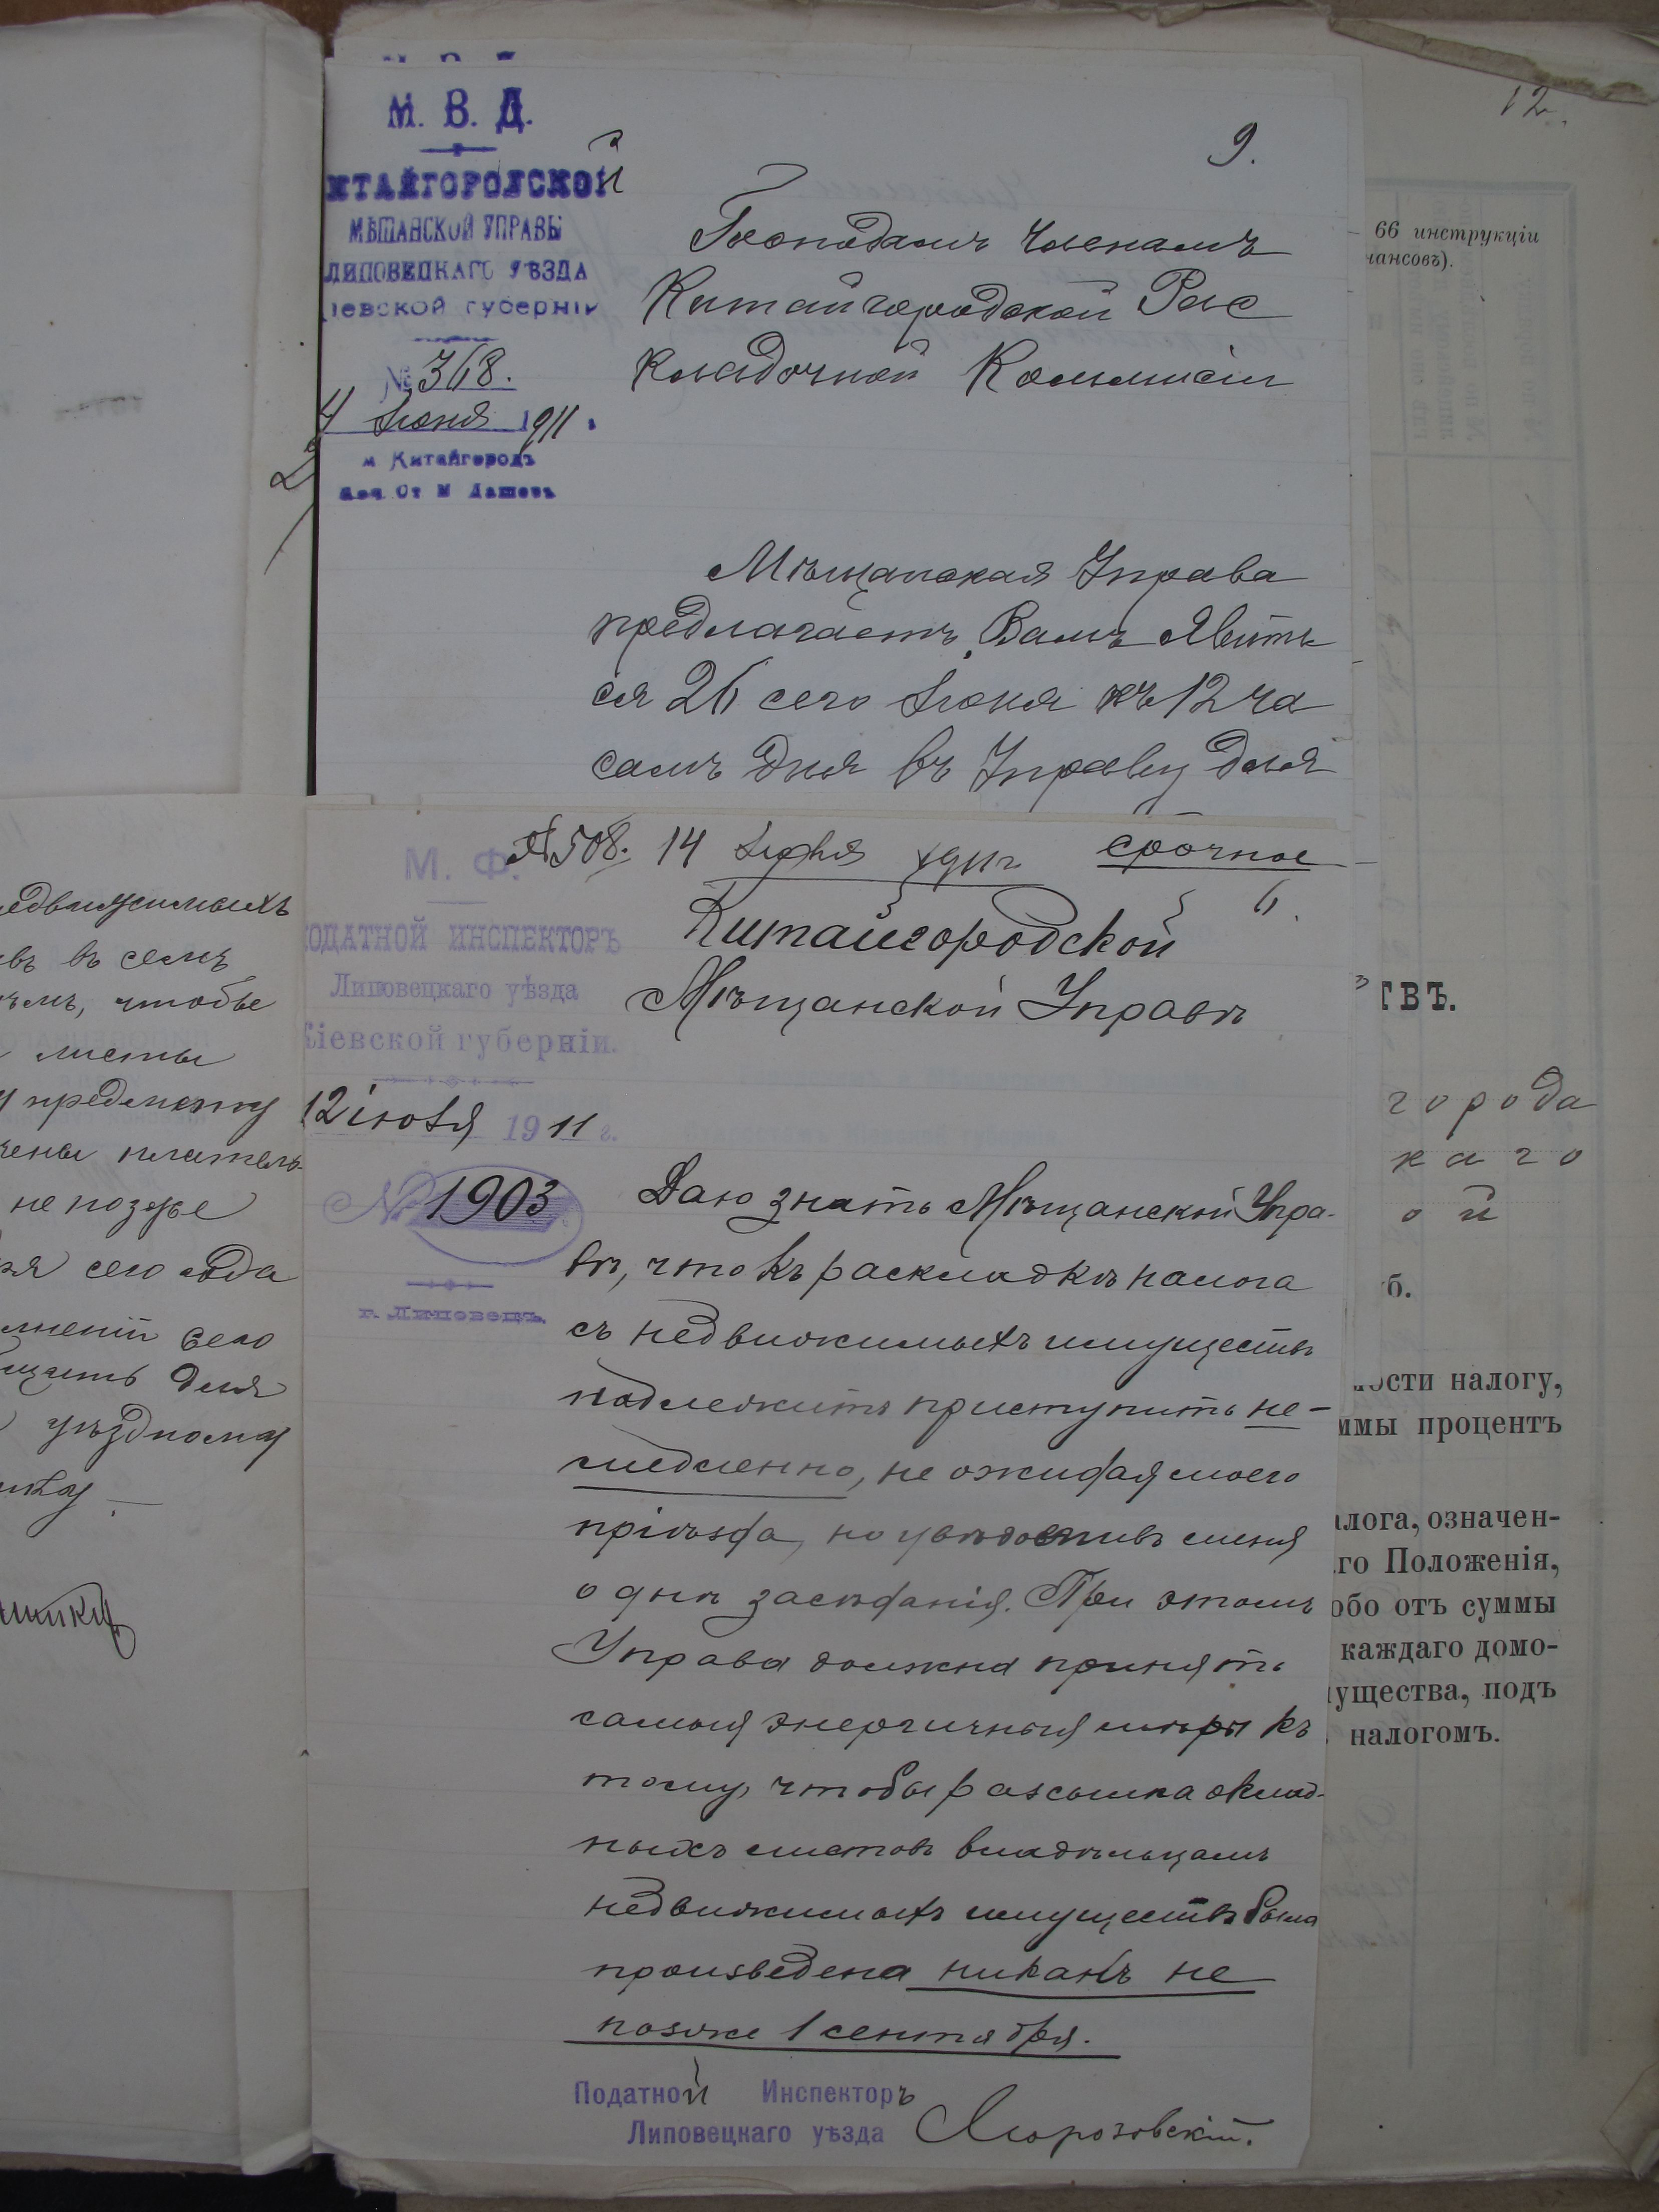 12.
66 инструкціи
нансовъ).
М. В. Д.
КИТАЙГОРОДСКОЙ
МѢЩАНСКОЙ УПРАВЫ
ЛИПОВЕЦКАГО УѢЗДА
Кіевской губерніи
№ 368.
Іюня 1911
м Китайгородъ
Поч. От М Дашевъ
9.
Господамъ Членамъ
Китайгородской Рас
кладочной Коммисіи
Мѣщанская Управа
предлагаетъ Вамъ явить
ся 26 сего Іюня къ 12 ча
самъ дня въ Управу для
№ 508. 14 1911 г. срочное
6.
М. Ф.
ПОДАТНОЙ ИНСПЕКТОРЪ
Липовецкаго уѣзда
Кіевской губерніи.
12 іюня 1911 г.
№ 1903
г. Липовецъ.
Китайгородской
Мѣщанской Управѣ
Даю знать Мѣщанской Упра-
вѣ, что къ раскладкѣ налога
съ недвижимыхъ имуществъ
надлежитъ приступить не-
медленно, не ожидая моего
пріѣзда, но увѣдомивъ меня
о днѣ засѣданія. При этомъ
Управа должна принять
самыя энергичныя мѣры къ
тому, чтобы разсылка оклад-
ныхъ листовъ владѣльцамъ
недвижимыхъ имуществъ была
произведена никакъ не
позже 1 сентября.
Податной Инспекторъ
Липовецкаго уѣзда
едвижимыхъ
въ въ семъ
чтобы
листы
предмету
плательъ-
не позже
сего года
сего
для
уѣздному
ТВЪ.
города
каго
ой
б.
ности налогу,
ммы процентъ
алога, означен-
го Положенія,
обо отъ суммы
каждаго домо-
ущества, подъ
налогомъ.